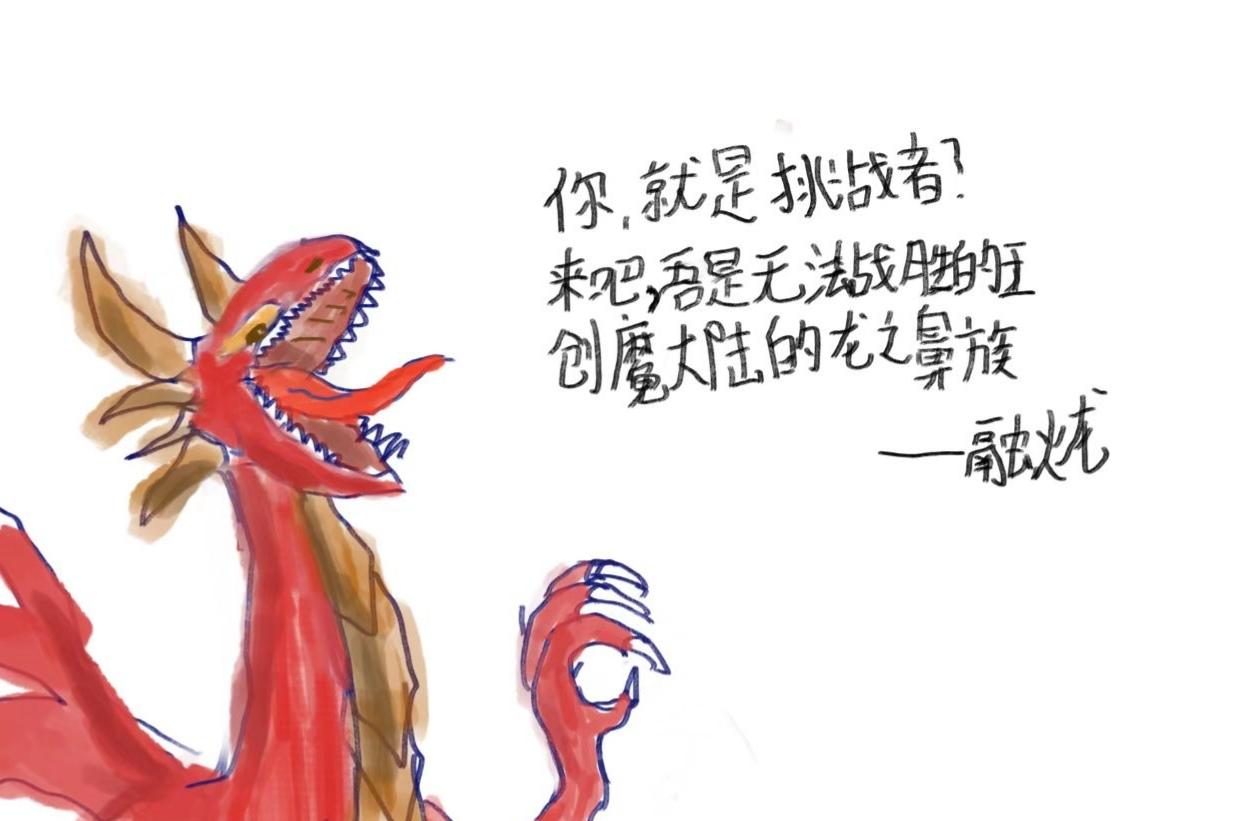 你,就是挑战者?
来吧,吾是无法战胜的狂
创魔大陆的龙之鼻族
——融火龙